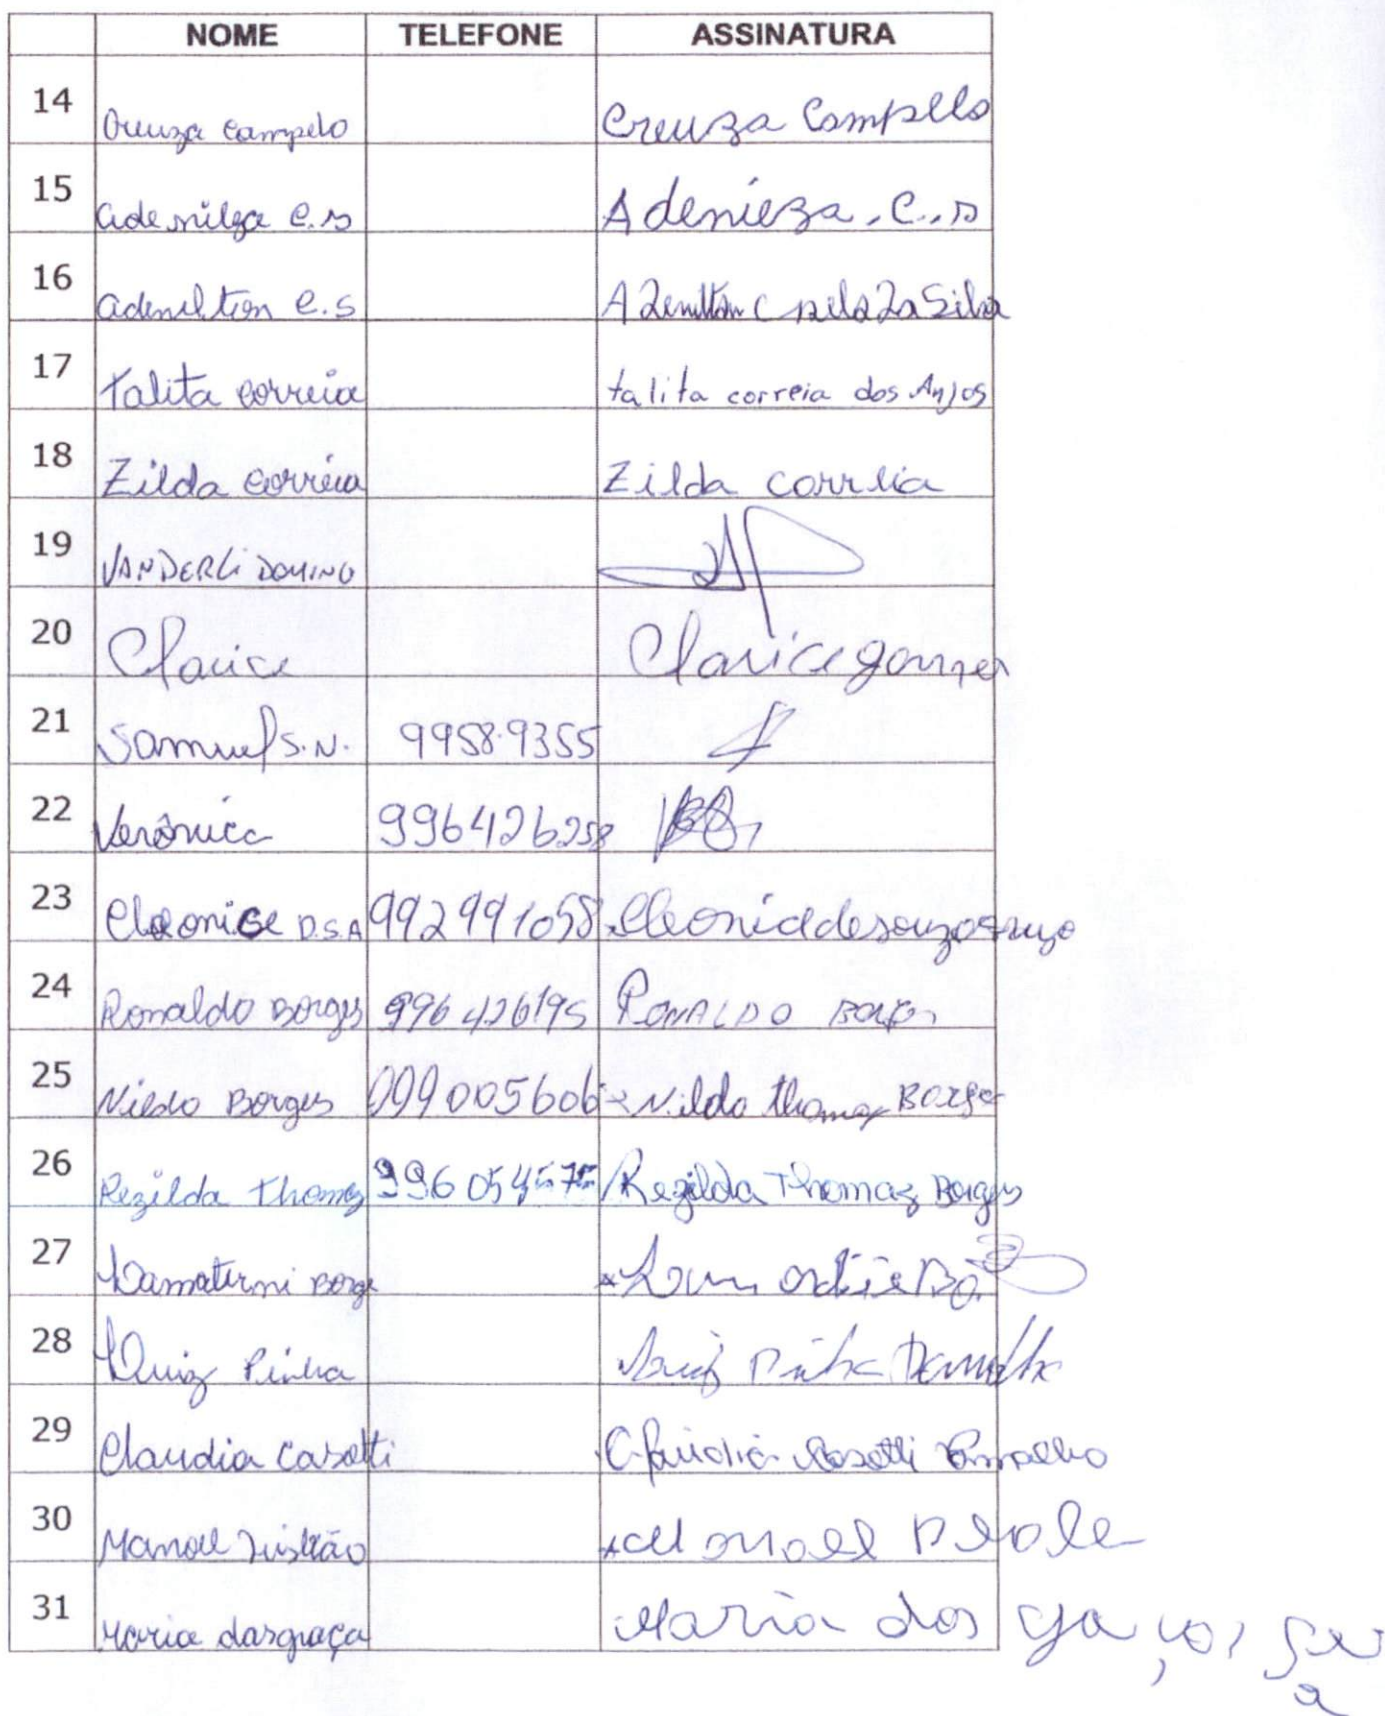 NOME TELEFONE ASSINATURA
14 Creuza Campelo Creuza Campello
15 Ademilza C.S Adenieza.C..S
16 Ademilton C.S
17 Talita Correia talita correia dos Anjos
18 Zilda Correia Zilda correia
19 VANDERLi DOMINO
20 Clarice Clarice gomes
21 Samuel S.N. 9958.9355
22 Verônica 996426258
23 Cleonice D.S.A 992991058
24 Ronaldo Borges 996426195 RONALDO Borges
25 Nildo Borges 999005606 Nildo thomaz Borge
26 Rezilda Thomaz 996054575 Rezilda Thomaz Borges
27 Borge
28 Luiz Pinha Luiz
29 Claudia Casotti Claudia Casotti
30 Manoel Manoel
31 Maria dasgraça Maria das